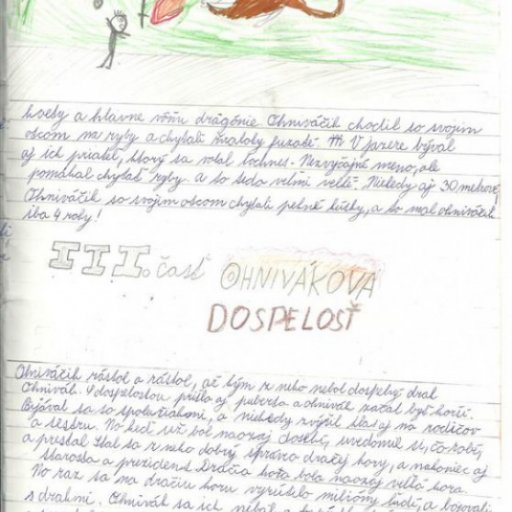 kosby a hlavne vôňu drágónie Ohniváčik chodil so svojim
otcom na ryby a chytali kraloby fuzaté. V jazere býval
aj ich priateľ, ktorý sa volal Lochnes. Nezvyčajné meno, ale
pomáhal chytať ryby. a to teda veľmi veľké. Niekedy aj 30 metrové,
Ohniváčik so svojim otcom chytali pelné , a to mal ohniváčik
iba 4 roky!
III. časť OHNIVÁKOVA
DOSPELOSŤ
Ohniváčik rástol a rástol, až kým z neho nebol dospelý drak
Ohnivák. S dospelosťou prišla aj puberta a ohnivák začal byť horší.
Bíjával sa so spolužiakmi, a niekedy zvýšil hlas aj na rodičov
a sestru. No keď už bol naozaj dospelý, uvedomil si, čo robí,
a prestal. Stal sa z neho dobrý správca dračej hory, a nakoniec aj
starosta a prezident. Dračia hora bola naozaj veľká hora.
No raz sa na dračiu horu vyrútilo milióny ľudí, a bojovali
s drakmi. Ohnivák sa ich nebál a